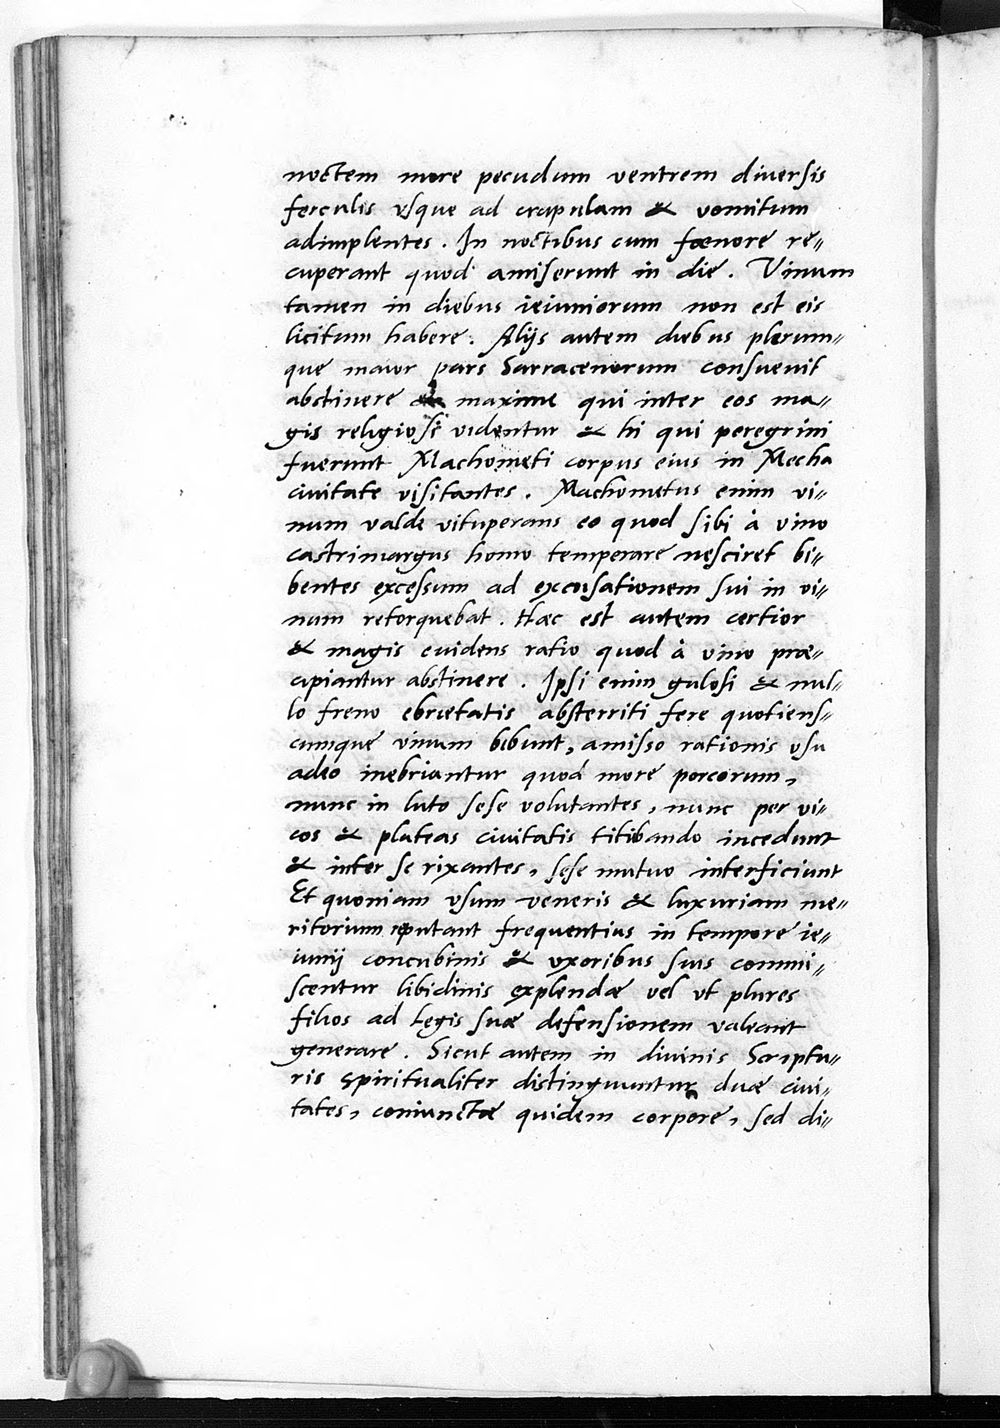 noctem more pecudum ventrem diuersis
ferculis vsque ad crapulam & vomitum
adimplentes. In noctibus cum fœnore re〃
cuperant quod amiserunt in die. Vinum
tamen in diebus ieiuniorum non est eis
licitum habere. Alijs autem diebus plerum〃
que maior pars Sarracenorum consueuit
abstinere maxime qui inter eos ma〃
gis religiosi videntur & hi qui peregrini
fuerunt Machometi corpus eius in Mecha
ciuitate visitantes. Machometus enim vi〃
num valde vituperans eo quod sibi à vino
castrimargus homo temperare nesciret bi〃
bentes excessum ad excusationem sui in vi〃
num retorquebat. Hæc est autem certior
& magis euidens ratio quod à vino præ〃
cipiantur abstinere. Ipsi enim gulosi & nul〃
lo freno ebrietatis absterriti fere quotiens〃
cumque vinum bibunt, amisso rationis vsu
adeo inebriantur quod more porcorum,
nunc in luto sese volutantes, nunc per vi〃
cos & plateas ciuitatis titibando incedunt
& inter se rixantes, sese mutuo interficiunt
Et quoniam vsum veneris & luxuriam me〃
ritorium reputant frequentius in tempore ie〃
iunij concubinis & vxoribus suis commi〃
scentur libidinis explendæ vel vt plures
filios ad legis suæ defensionem valeant
generare. Sicut autem in diuinis Scriptu〃
ris spiritualiter distinguuntur duæ ciui〃
tates, coniunctæ quidem corpore, sed di〃